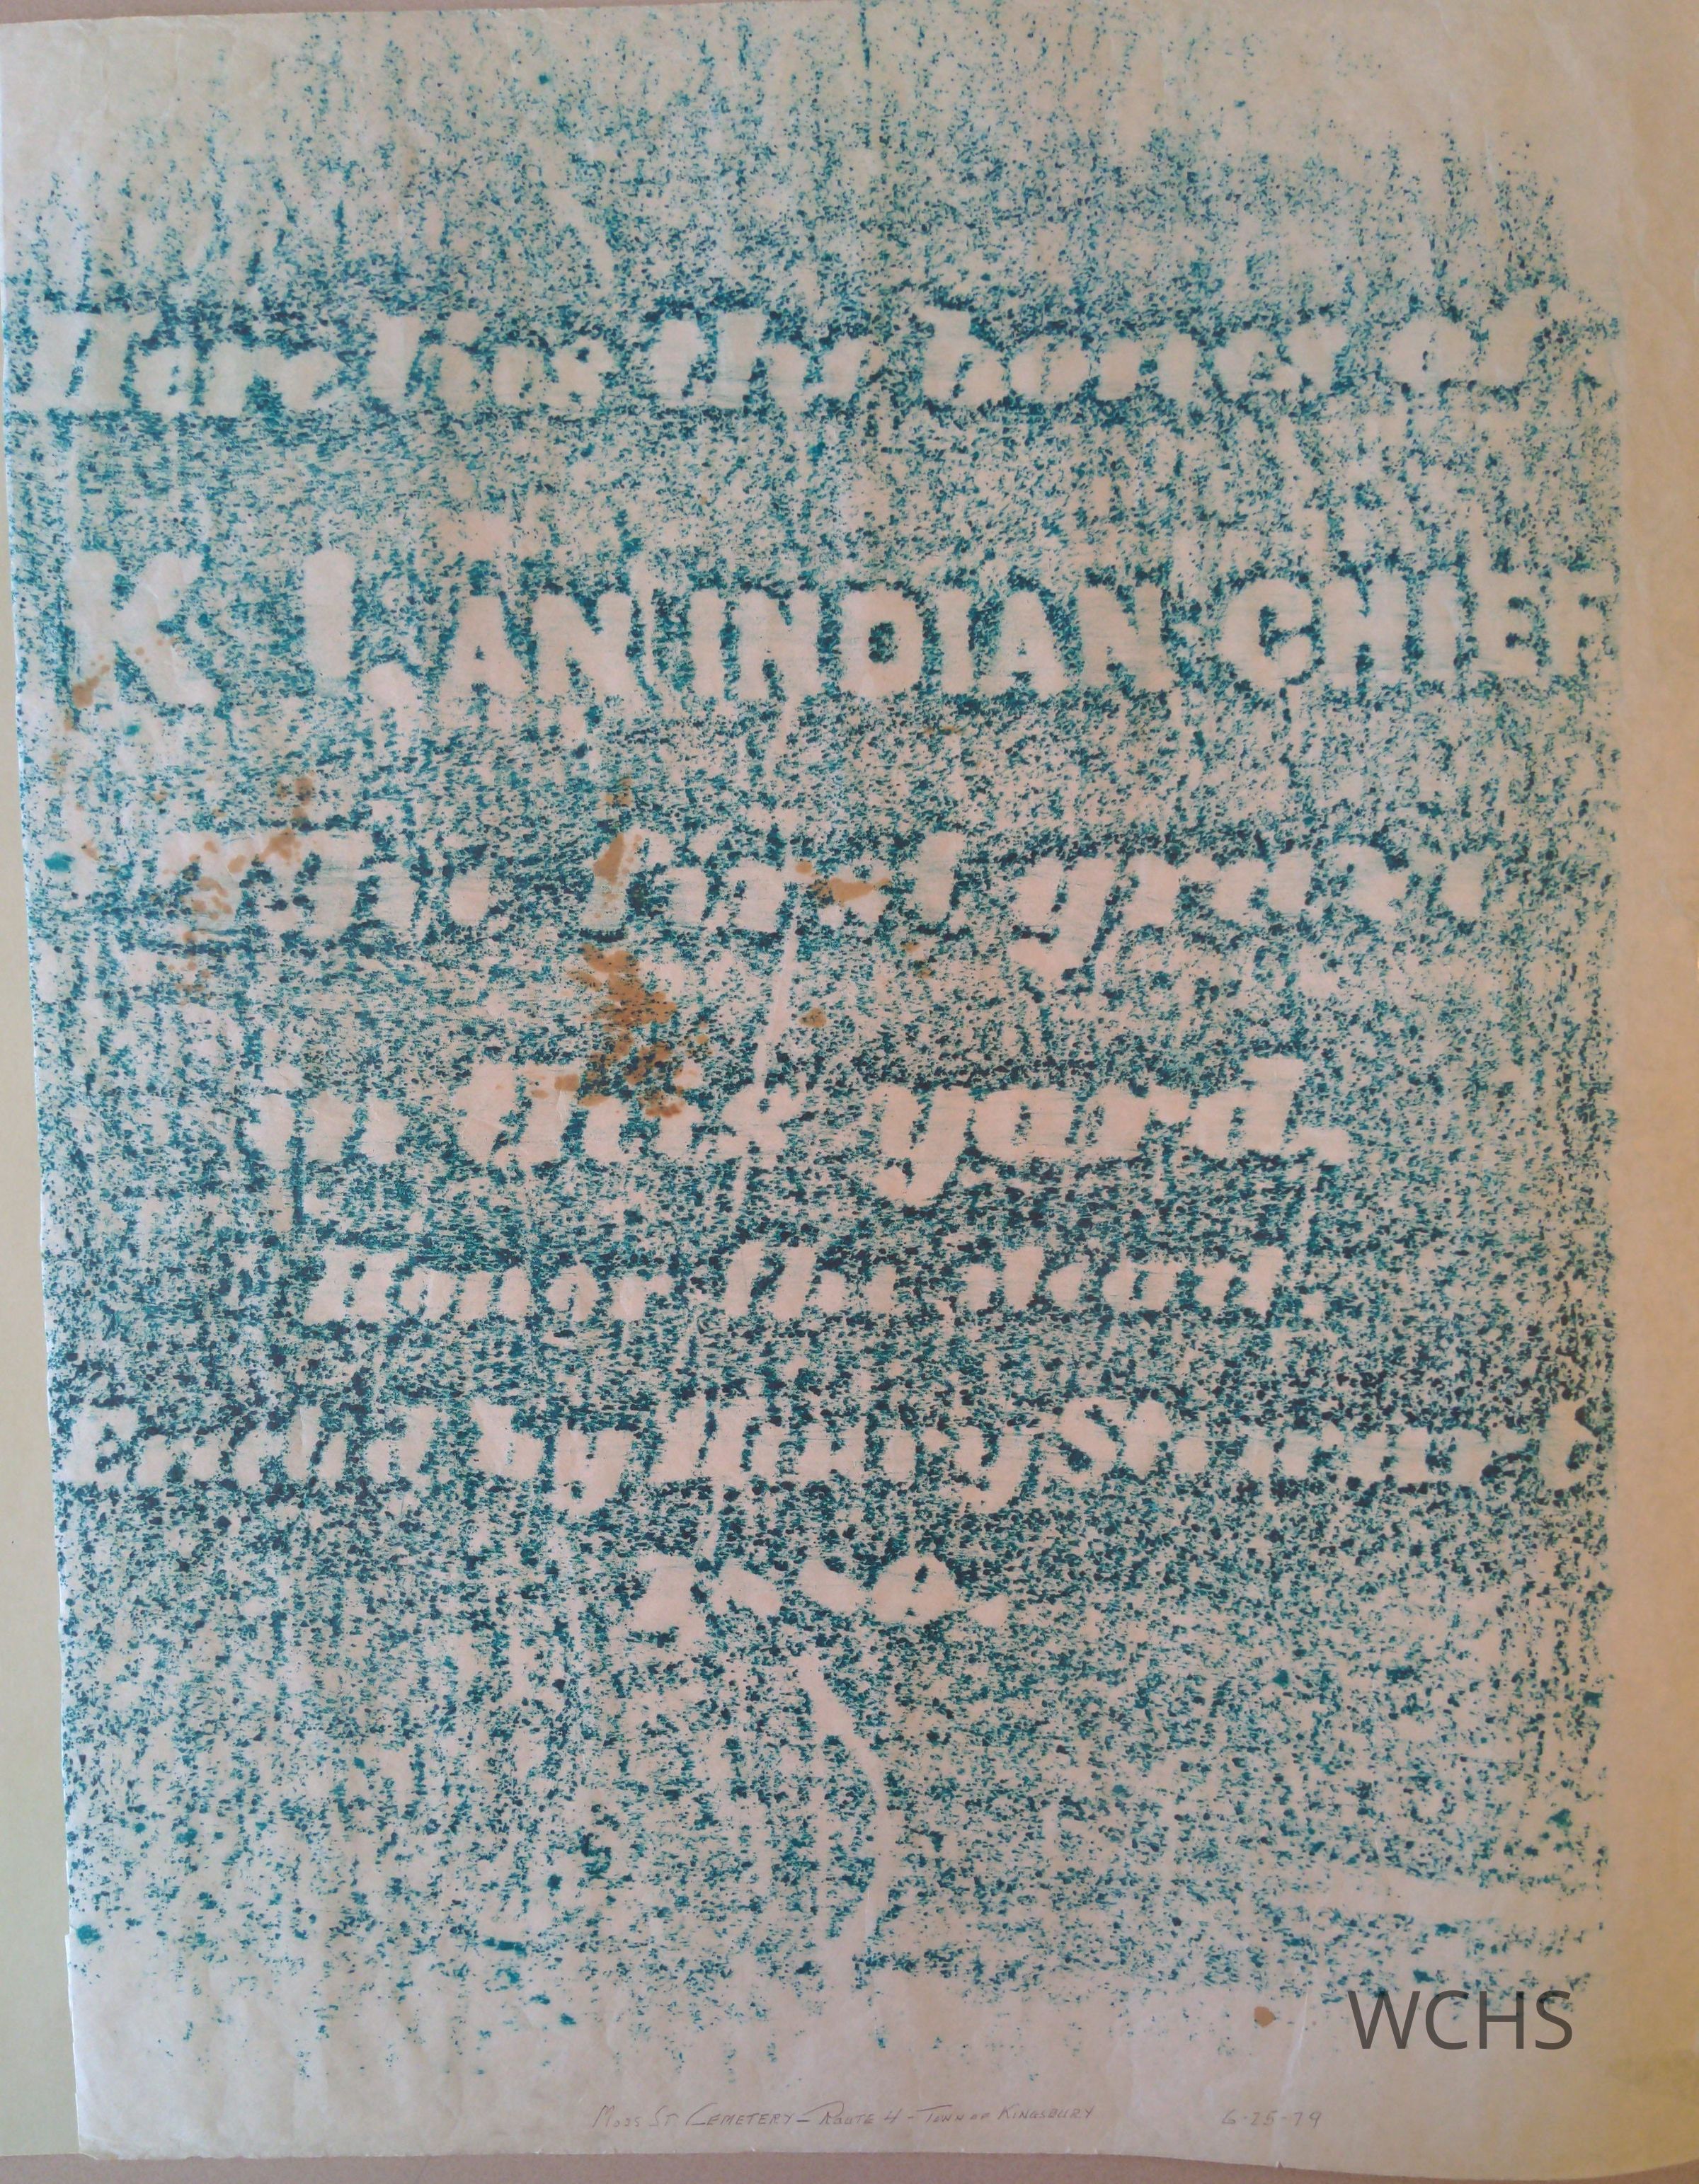 Here lies the bones of
K I, AN INDIAN CHIEF
The grave
in this yard,
Honor the
Erected by Henry
WCHS
MOSS ST CEMETERY - ROUTE 4 - TOWN OF KINGSBURY 6-25-79